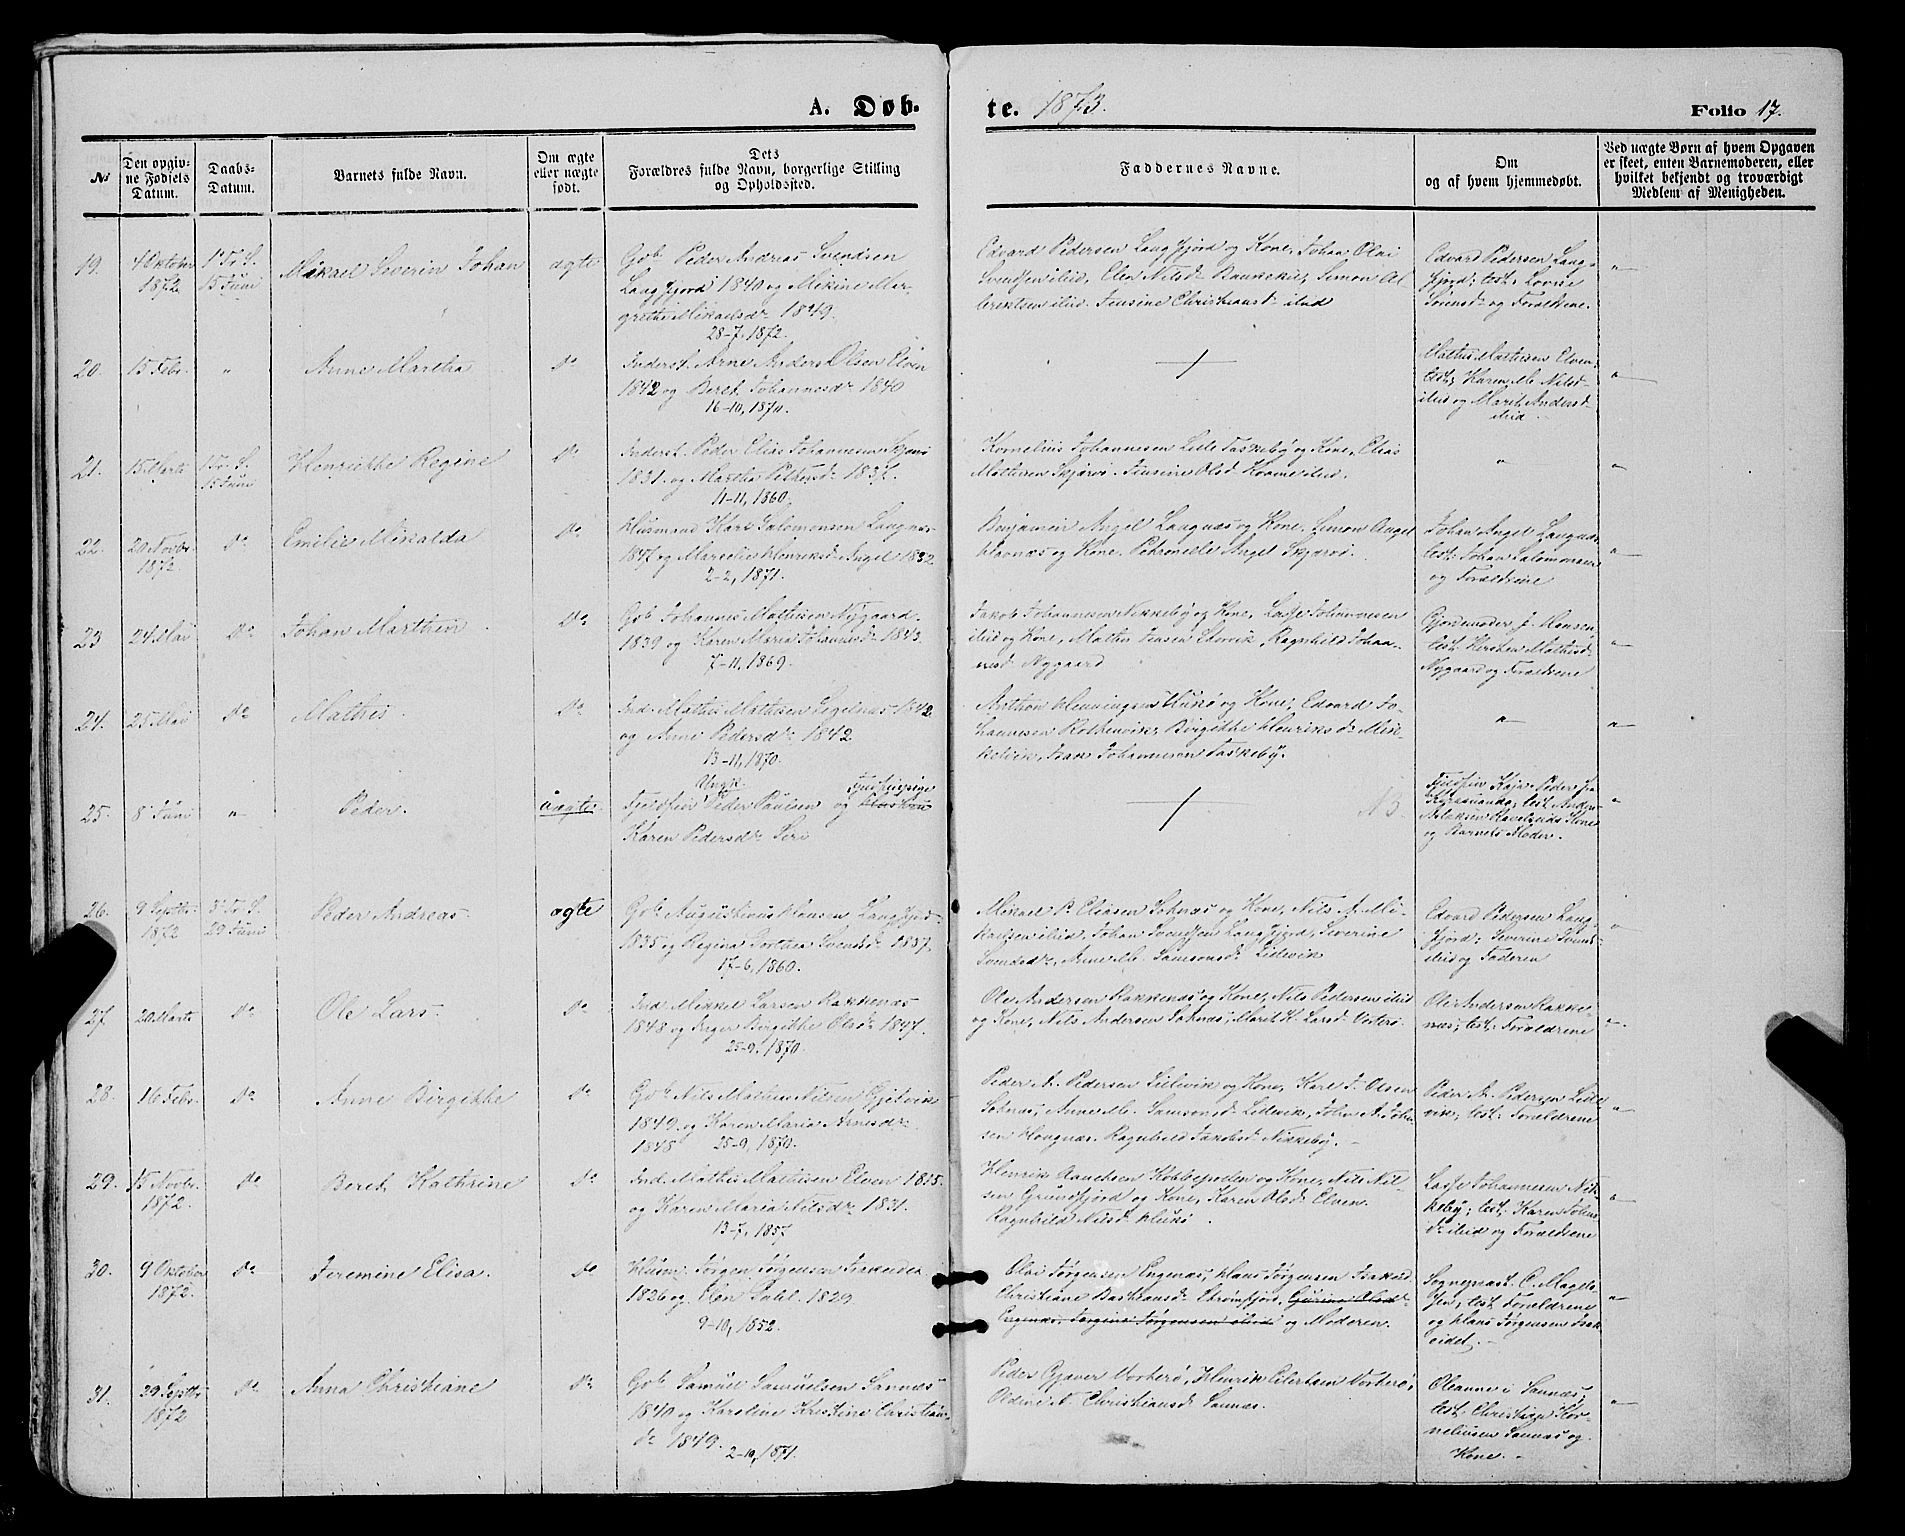 A. Døb-
te. 1873.
Folio 17.
No
Den opgiv-
ne Fødsels
Datum.
Daabs-
Datum.
Barnets fulde Navn.
Om ægte
eller uægte
født.
Dets
Forældres fulde Navn, borgerlige Stilling
og Opholdssted.
Faddernes Navne.
Om
og af hvem hjemmedøbt.
Ved uægte Børn af hvem Opgaven
er skeet, enten Barnemoderen, eller
hvilket bekjendt og troværdigt
Medlem af Menigheden.
19.
4 Oktober
1872
1' Tr. S.
15 Juni
Mikael Severin Johan
ægte
Gb Peder Andreas Svendsen
Langfjord 1840 og Mekine Mar-
grethe Mikaelsdr 1849.
28-7, 1872.
Edvard Pedersen Langfjord og Kone, Johan Olai
Svendsen ibid, Elen Nilsd Simon Al-
brektsen ibid. Jensine Christiansd ibid
Edvard Pedersen Lang-
fjord; test. Lovise
Sørensd og Forældrene.
"
20.
15 Febr.
"
Anne Martha
Do
Inderst. Arne Anders Olsen Elven
1842 og Beret Johannesdr 1840
16-10, 1870.
Mathis Mathisen Elven
test. Karen M. Nilsd
ibid og Marit Andersd
ibid
"
21.
15 Marts
1 Tr. S.
15 Juni
Henrikke Regine
Do
Inderst. Peder Elias Johannesen Skjervø
1831. og Martha Petersd 1837.
11-11, 1860.
Kornelius Johannesen Lille Taskeby og Kone, Elias
Mathisen Skjervø. Jensine Olsd ibid.
"
"
22.
20 Novbr.
1872
Do
Emilie Mikalda
Do
Husmand Karl Salomonsen Langnæs
1847 og Marselie Henriksd Angel 1832
2-2, 1871.
Benjamin Angel Langnæs og Kone, Simon Angel
Havnæs og Kone, Petronelle Angel Skjervø.
Johan Angel Langnæs
test: Johan Salomonsen
og Forældrene
"
23
24 Mai
Do
Johan Marthin
Do
Gb Johannes Mathisen Nygaard
1839 og Karen Maria Johannesd 1843.
7-11, 1869.
Jakob Johannesen Nikkeby og Kone, Lasse Johannesen
ibid og Kone, Mathis Jensen Ragnhild Johan-
nesd Nygaard
Gjordemoder J. Hansen
test. Kirsten Mathisd
Nygaard og Forældrene
"
24.
25 Mai
Do
Mathis.
Do
Ind. Mathis Mathisen Segelnæs 1842
og Anne Pedersdr 1842
13-11, 1870.
Anthon Henningsen Hukø og Kone, Edvard Jo-
hannesen Rotsenvik, Birgitte Henriksd Mik-
kelvik, Isak Johannesen Taskeby.
"
"
25.
8 Juni
"
Peder.
uægte
Ungk. Fjeldfinske
Fjeldfin Peder Paulsen og
Karen Pedersdr Siri
NB
Fjeldfin Kaja Peder fra
test. Anders
Nilsen Kone
og Barnets Moder.
"
26.
9 Septbr.
1872
3' Tr. S.
29 Juni
Peder Andreas.
ægte
Gb Augustinus Hansen Langfjord
1835 og Regina Dorthea Svendsd 1837.
17-6, 1860.
Mikael P. Eliasen Soknæs og Kone, Nils A. Mi-
kaelsen ibid, Johan Svendsen Langfjord, Severine
Svendsdr, Anne M. Samsonsd Lidevik
Edvard Pedersen Lang-
fjord; Severine Svends-
ibid og Faderen
"
27.
20 Marts
Do
Ole Lars.
Do
Ind. Mikkel Larsen Rakkenæs
1848 og Inger Birgithe Olsd 1847.
25-9, 1870.
Ole Andersen Rakkenæs og Kone, Nils Pedersen ibid
og Kone, Nils Andersen Soknæs, Marit K. Larsd Vorterø.
Ole Andersen Rakke-
næs; test: Forældrene
"
28.
16 Febr.
Do
Anne Birgithe
Do
Gb Nils Mathis Nilsen Gjetvik
1849. og Karen Maria Arnesdr
1848 25-9, 1870.
Peder A. Pedersen Lidevik og Kone, Karl J. Olsen
Soknæs, Anne M. Samsonsd Lidevik, John A. John-
sen Haugnæs. Ragnhild Jakobsd Nikkeby.
Peder A. Pedersen Lide-
vik; test: Forældrene
"
29.
15 Novbr.
1872.
Do
Beret Kathrine
Do
Ind. Mathis Mathisen Elven 1835.
og Karen Maria Nilsdr 1831.
13-7, 1857
Henrik Kobbepollen og Kone, Nils Nil-
sen Grundfjord og Kone, Karen Olsd Elven.
Ragnhild Nilsd Hukø.
Lasse Johannesen Nik-
keby; test: Karen Johns
dr ibid og Forældrene
"
30.
9 Oktober
1872.
Do
Jeremine Elisa.
Do
Husm. Jørgen Jørgensen Isakeidet
1826 og Elen Dahl 1829.
9-10, 1852.
Olai Jørgensen Engenæs, Hans Jørgensen Isakeid.
Christiane Bastiansd Strømfjord, Gjurine Olsdr
Engenæs, Jørgine Jørgensen ibid og Moderen.
Sognepræst O. Magels-
sen, test. Forældrene
og Hans Jørgensen Isak-
eidet.
"
31.
29 Septbr.
1872
Do
Anna Christiane
Do
Gb Samuel Samuelsen Sannæs
1840 og Karoline Kristine Christian-
dr 1849. 2-10, 1871.
Peder Gjæver Vorterø, Henrik Eilertsen Vorterø;
Oldine A. Christiansd Sannæs.
Oleanne i Sannæs;
test. Christian Kor-
neliusen Sannæs og
Kone.
"